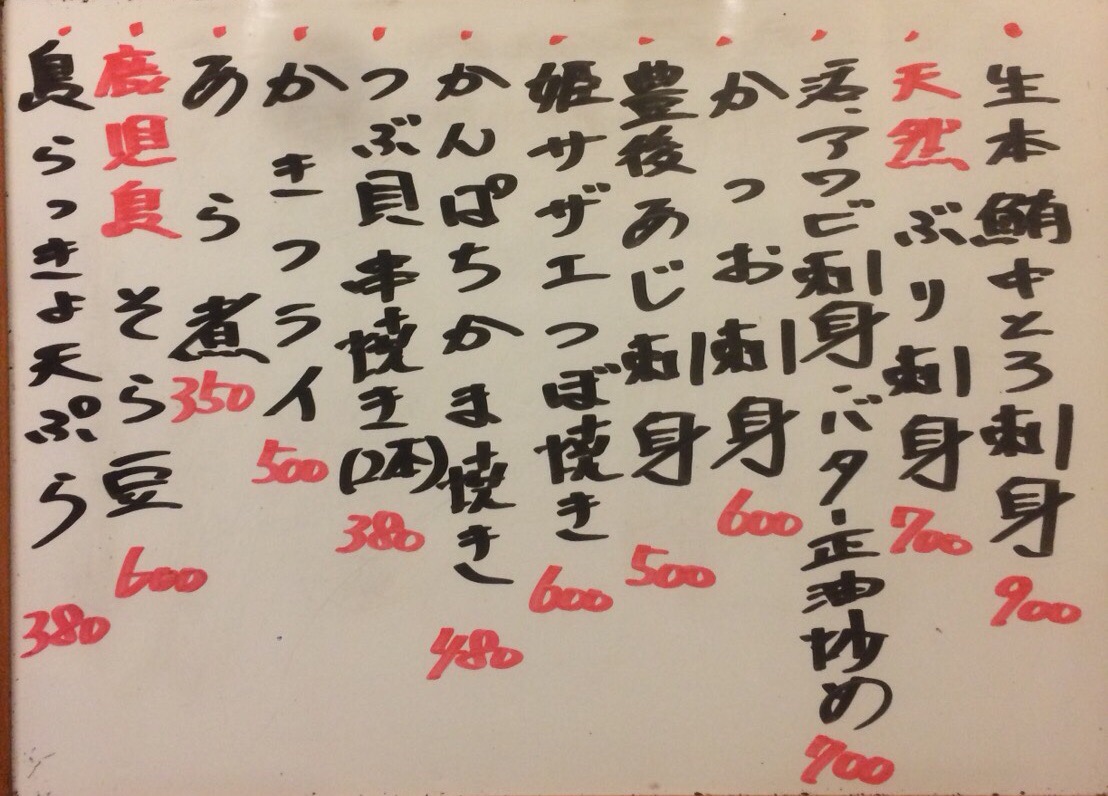 ・生本鮪中とろ刺身 900
・天然ぶり刺身 700
・活、アワビ刺身・バター正油炒め 700
・かつお刺身 600
・豊後あじ刺身 500
・姫サザエつぼ焼き 600
・かんぱちかま焼き 480
・つぶ貝串焼き(2本) 380
・かきフライ 500
・あら煮 350
・鹿児島そら豆 600
・島らっきょ天ぷら 380